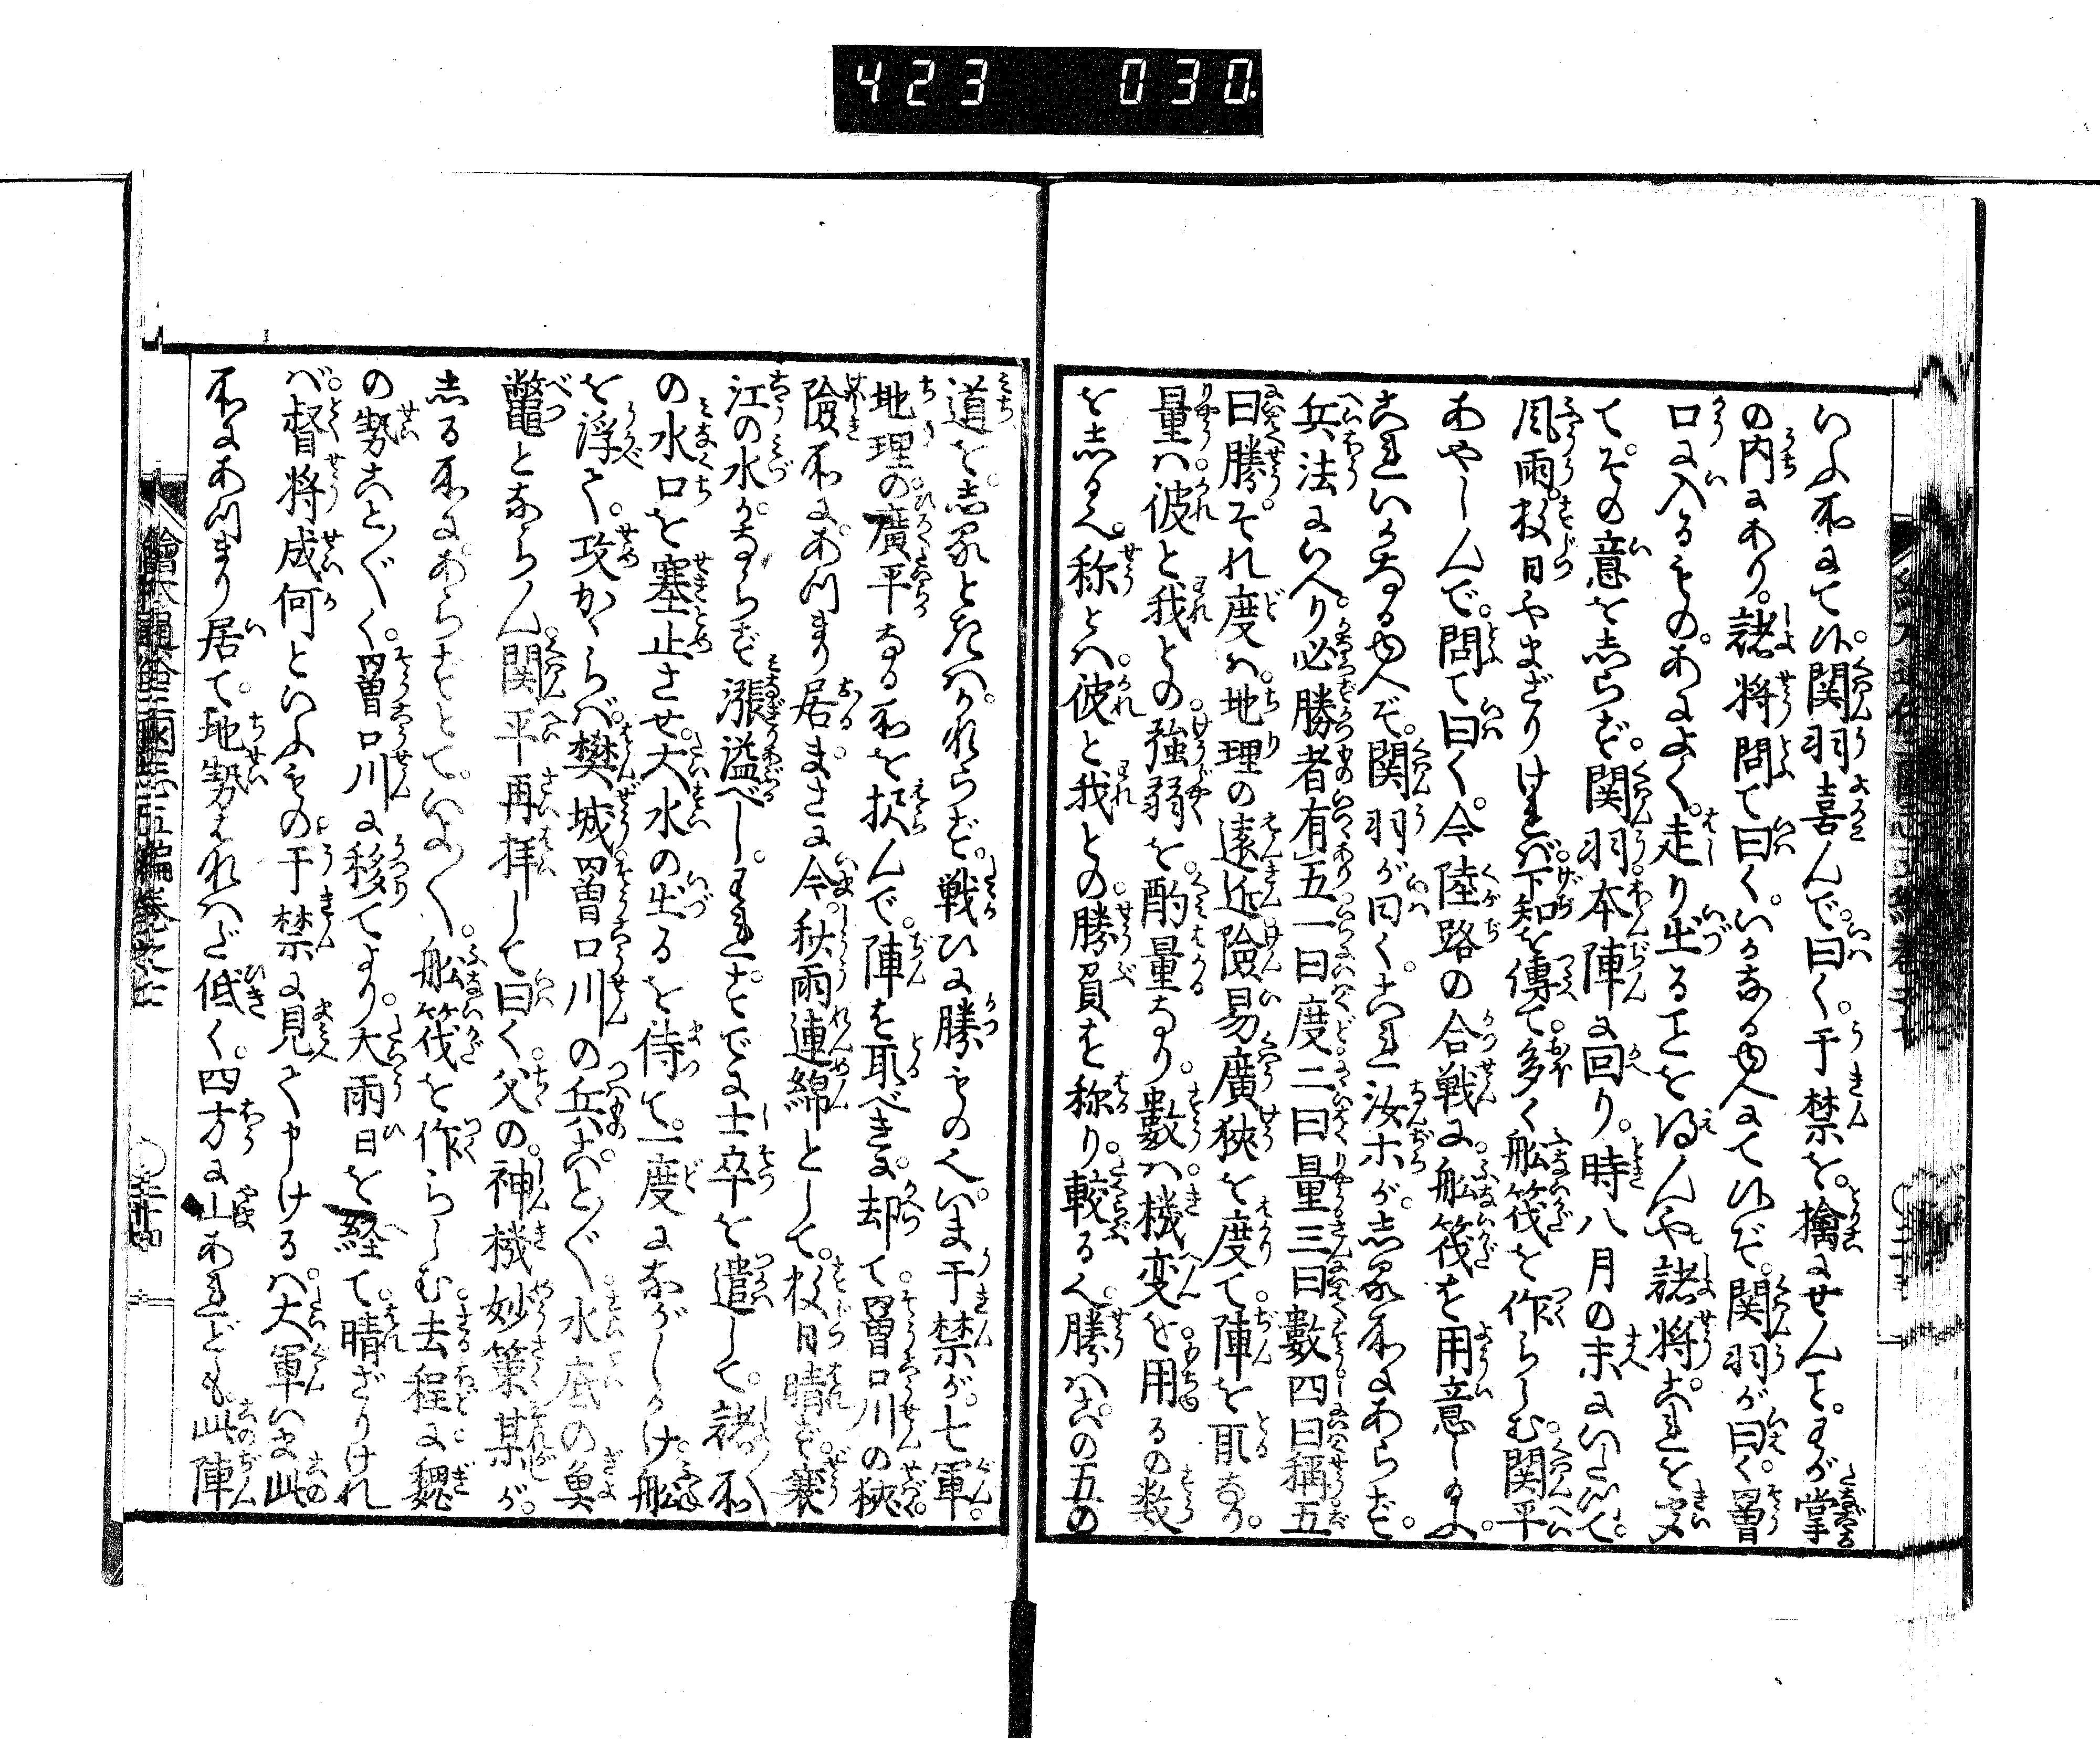 423 030
いふ所にて候。関羽喜んで曰く。于禁を。擒にせんこと。わが掌
の内にあり。諸将問て曰く。いかなるゆへにて候ぞ。関羽が曰く罾
口に入るもの。あによく。走り出ることを得んや。諸将。これを笑
て。その意を志らず。関羽。本陣に回り。時八月の末にいたつて。
風雨。数日やまざりければ。下知を傳て。多く舩筏を作らしむ。関平
あやしんで。問て曰く。今陸路の合戦に。舩筏を用意し給ふ。
これいかなるゆへぞ。関羽が曰く。これ汝等が志る所にあらず。
兵法にいへり。必勝者有五一曰度二曰量三曰數四曰稱五
曰勝。それ度は。地理の遠近。険易廣狭を度て。陣を取なり。
量は。彼と我との。強弱を。酌量なり。數は。機変を用るの数
を志るなり。称とは。彼と我との。勝負を称り。較るなり。勝は。この五の
道を。志るときは。かならず。戦ひに勝ものなり。いま于禁が。七軍。
地理の。廣平なる所を択んで。陣を取べきに。却て。罾口川の狭
険所に。あつまり居。まさに今。秋雨連綿として。数日晴ず。襄
江の水。かならず漲溢べし。われ。すでに士卒を遣して。諸所
の水口を塞止させ。大水の出るを待て。一度にながしかけ。舩
を浮べて。攻かゝらば。樊城。罾口川の兵。こと〴〵く。水底の魚
鼈とならん。関平再拝して曰く。父の。神機妙策。某が。
志る所に。あらずとて。いよ〳〵。舩筏を作らしむ。去程に。魏
の勢こと〴〵く。罾口川に移てより。大雨日を経て。晴ざりけれ
ば。督将成何といふもの。于禁に見えて申けるは。大軍いま此
所にあつまり居て。地勢はなはだ低く。四方に山あれども。此陣
繪本通俗三國志五編巻之七